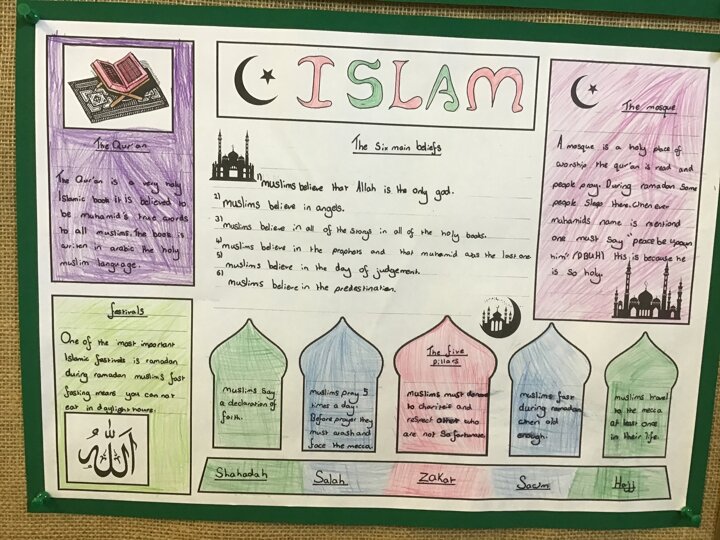 ISLAM
The Qur'an
The Qur'an is a very holy
Islamic book it is believed to
be muhamid's true words
to all muslims. The book is
written in arabic the holy
muslim language.
The Six main beliefs
1) muslims believe that Allah is the only god.
2) muslims believe in angels.
3) muslims believe in all of the storys in all of the holy books.
4) muslims believe in the prophets and that muhamid was the last one
5) muslims believe in the day of judgement.
6) muslims believe in the predestination.
The mosque
A mosque is a holy place of
worship the qur'an is read and
people pray. During ramadan some
people sleep there. When ever
muhamids name is mentiond
one must say "peace be upown
him" (PBUH) this is because he
is so holy.
festivals
One of the most important
Islamic festivals is ramadan
during ramadan muslims fast
fasting means you can not
eat in daylight hours.
الله
The five
pillars
muslims say
a declaration of
faith.
muslims pray 5
times a day.
Before prayer they
must wash and
face the mecca.
muslims must donate
to chariteit and
respect who
are not so fortunate.
muslims fast
during ramadan
when old
enough.
muslims travel
to the mecca
at least once
in their life.
Shahadah
Salah
Zakat
Sawm
Hajj